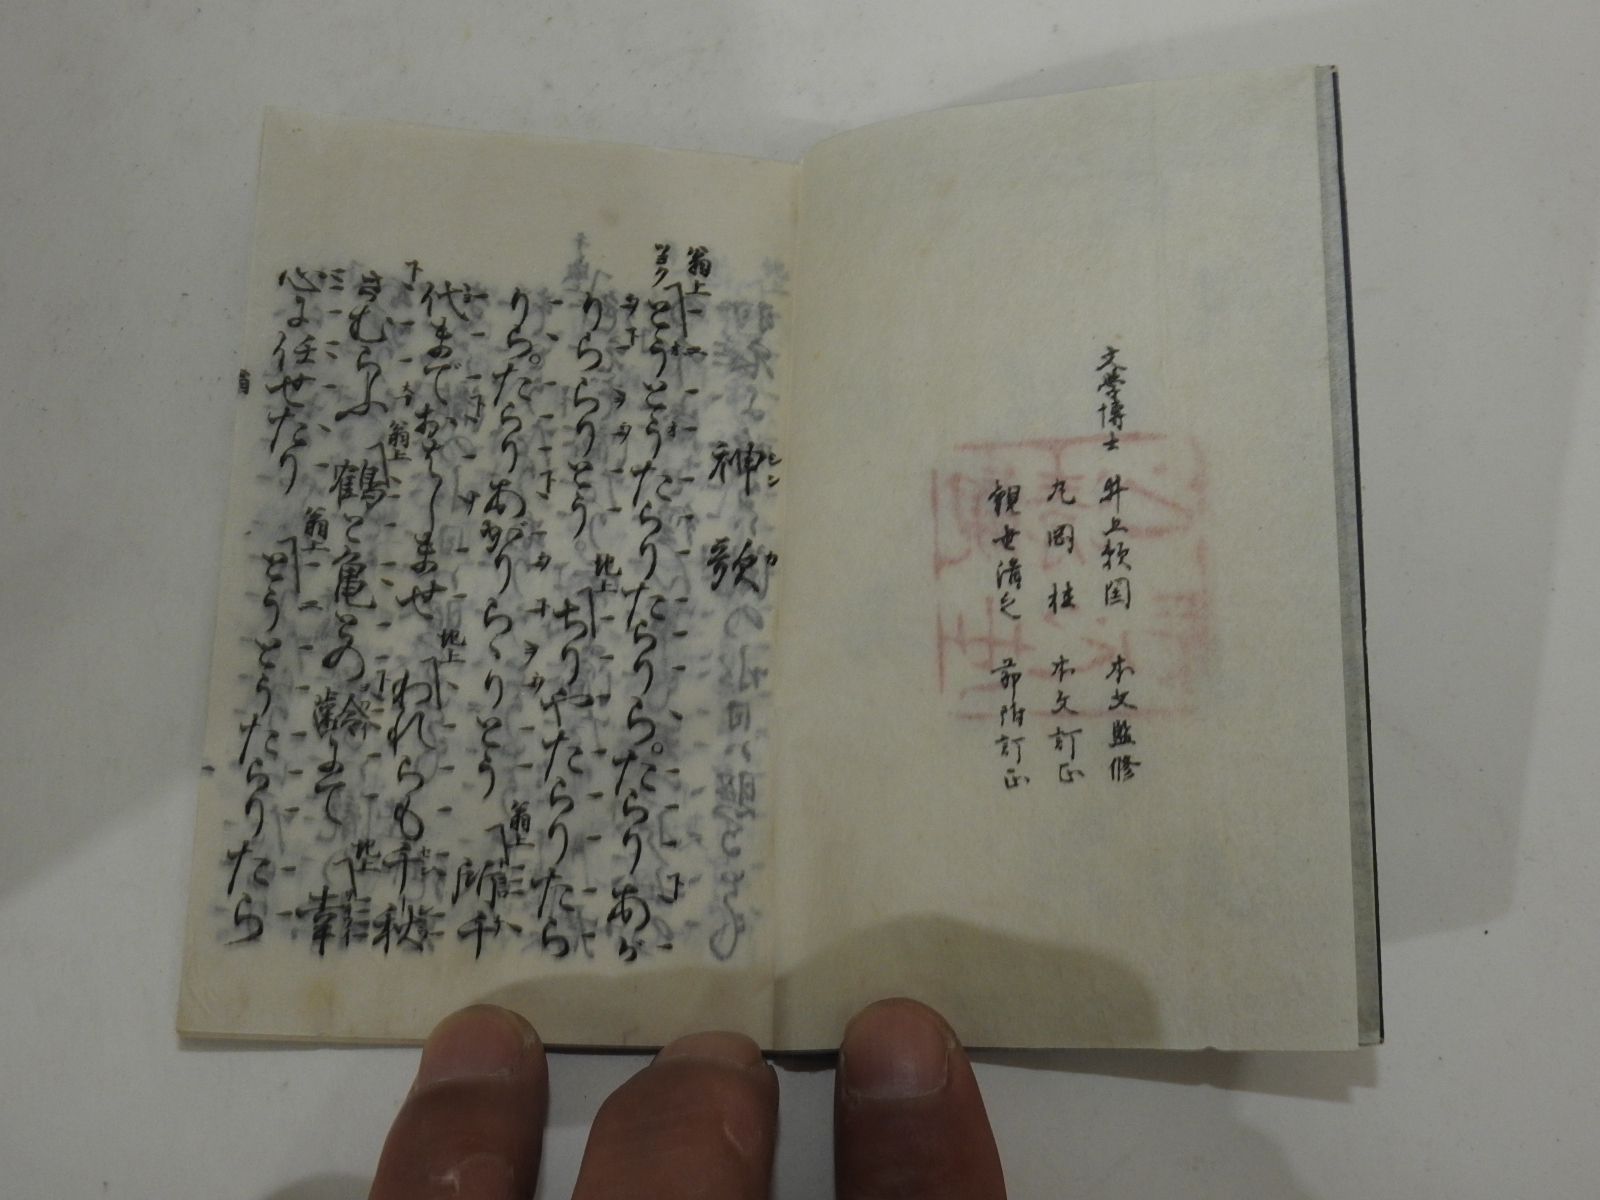 文學博士 井上頼圀 本文監修
丸岡桂 本文訂正
観世清之 節附訂正
神歌
シンカ
翁上
ツヨク
とうとうたらりたらりら。たらりあが
りららりとう。
地上
ちりやたらりたら
りら。たらりあがりらゝりとう
翁上
所千
代までおはしませ
地上
われらも千秋
さむらふ
翁上
鶴と亀との齢にて
地上
幸
心に任せたり
翁上
とうとうたらりたら
翁